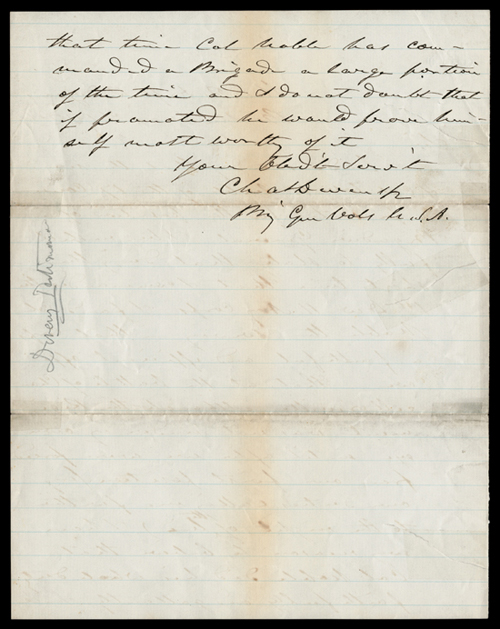 that time Col Noble has com-
manded a Brigade a large portion
of the time and I do not doubt that
if promoted he would prove him-
self most worthy of it
Your Obdt Servt
Chas Devens Jr
Brig Gen Vols U.S.A.
Devens